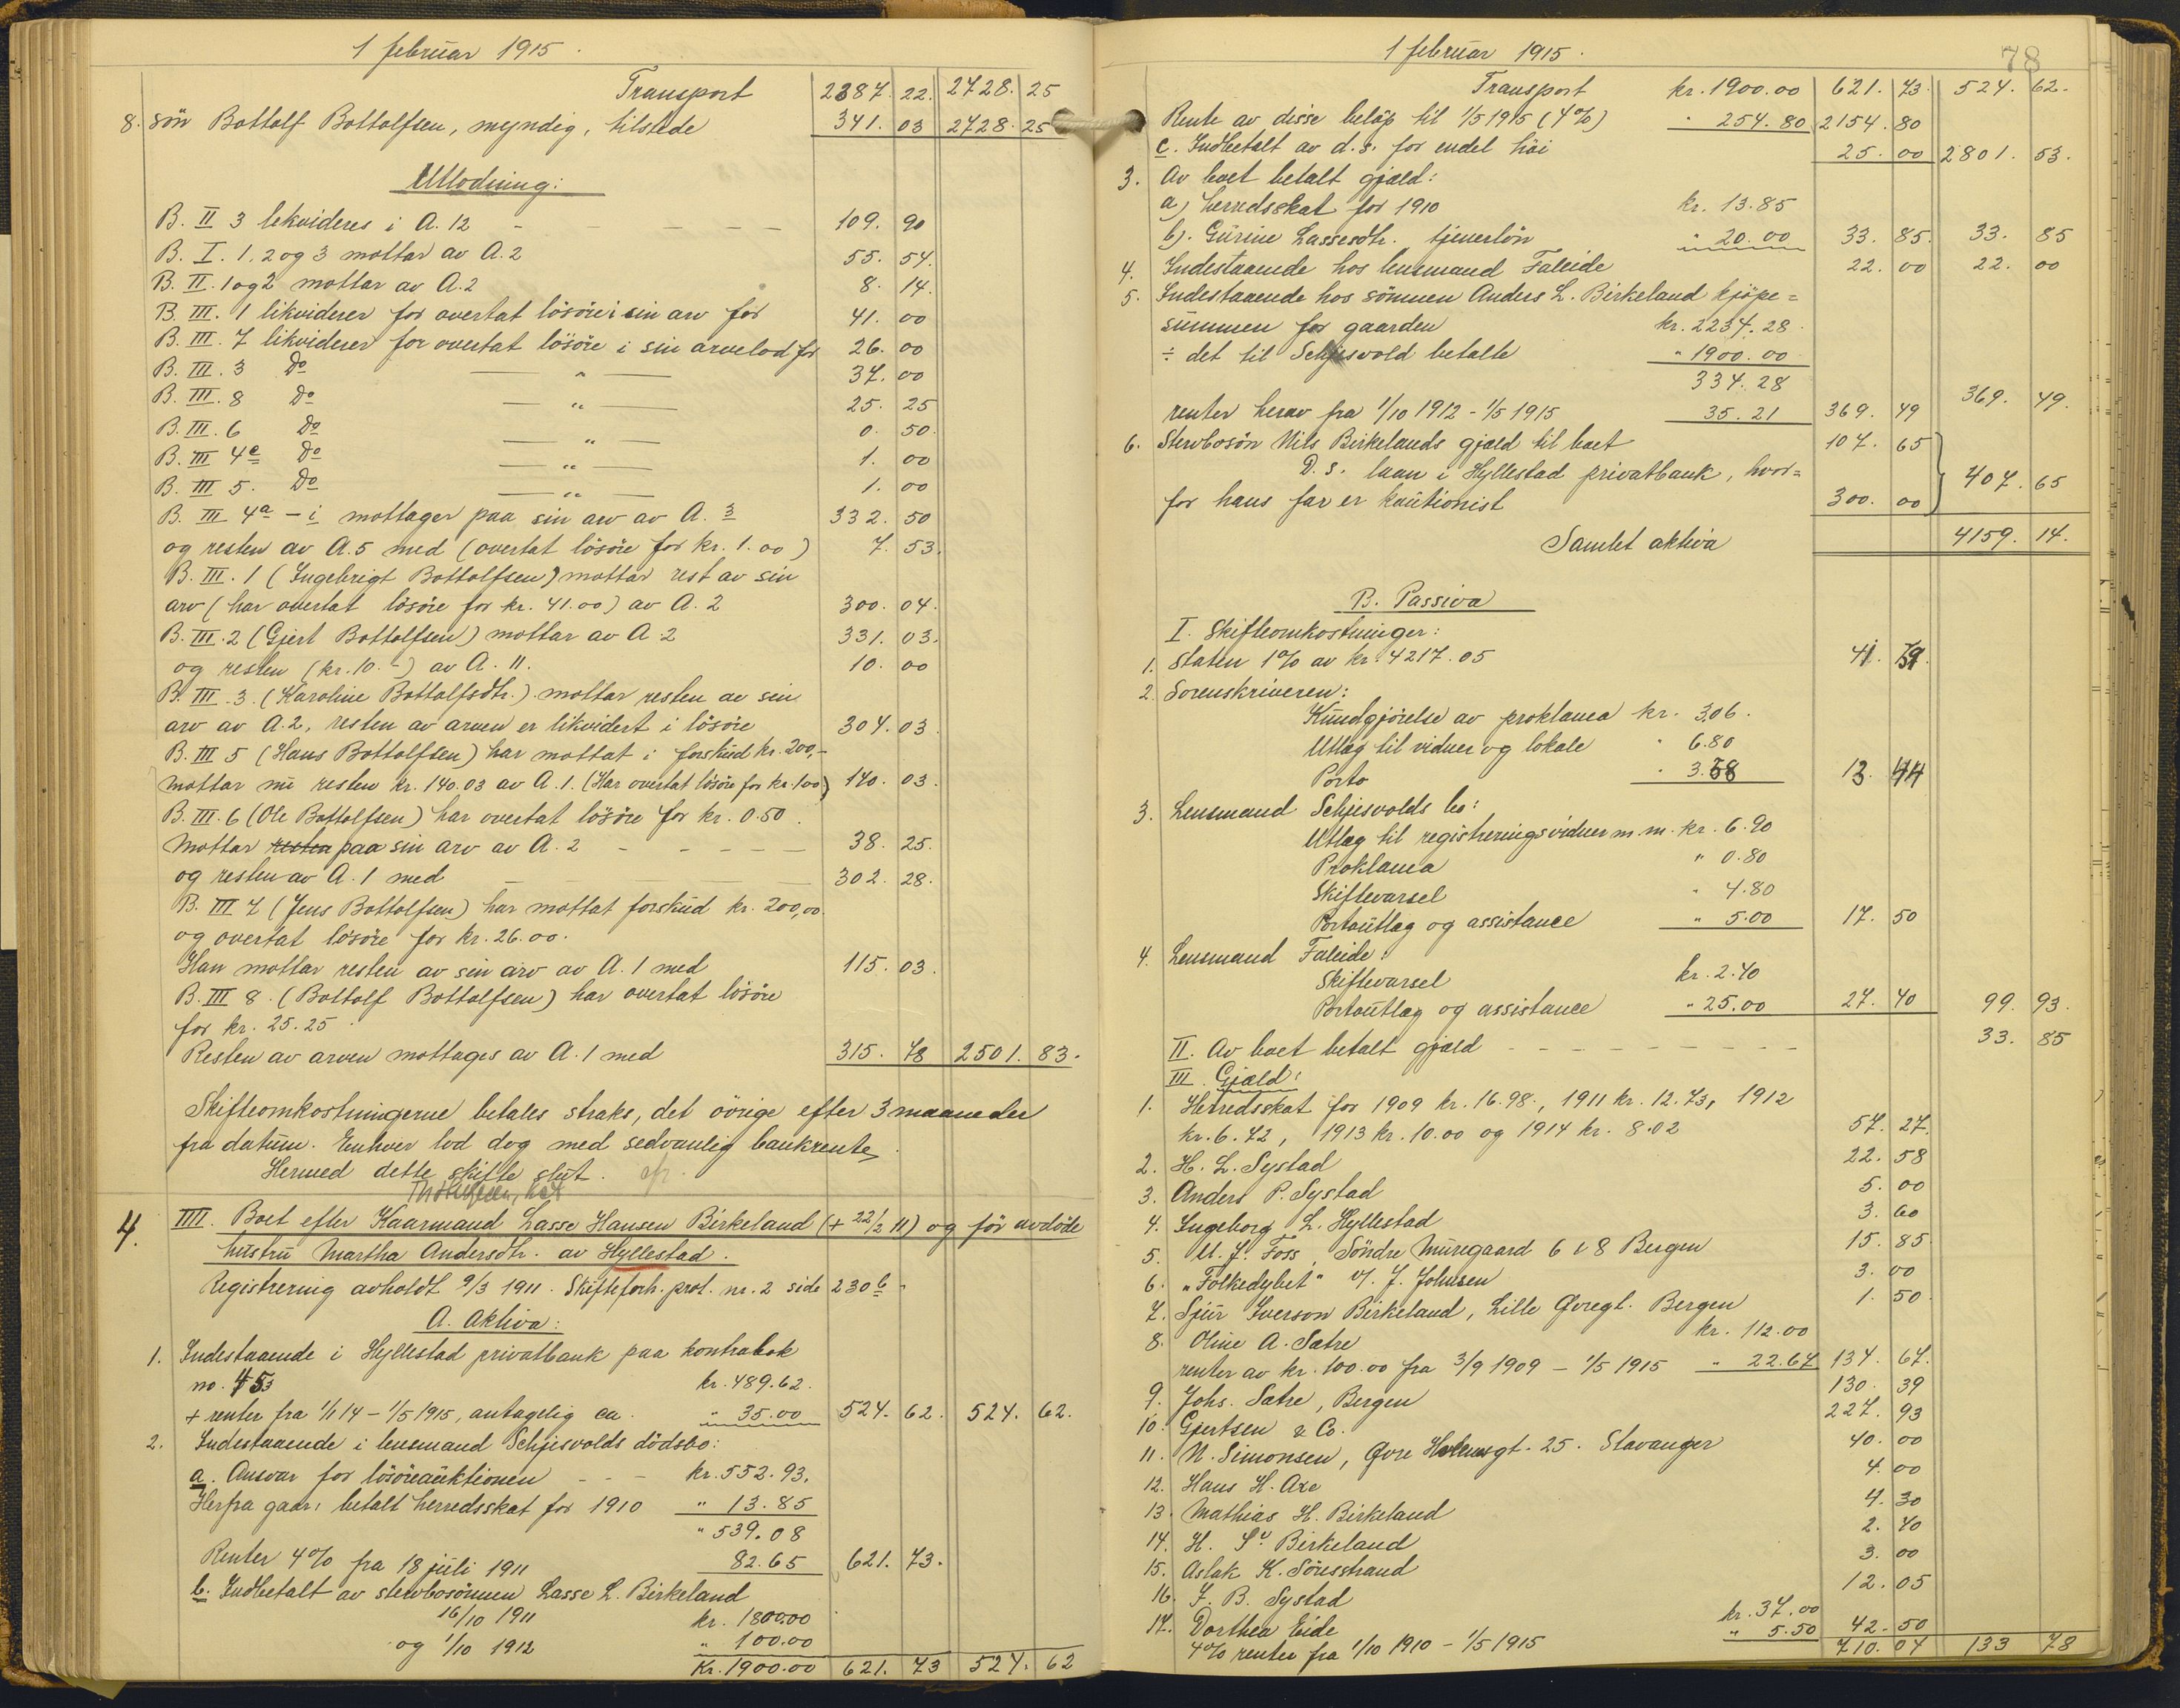 1 februar 1915.
Transport 2387. 22. 2728. 25
8. Søn Bottolf Bottolfsen, myndig, tilstede 341. 03 2728. 25
Utlodning:
B. II 3 likvideres i A. 12 - - - - - - 109. 90
B. I. 1, 2 og 3 mottar av A. 2 55. 54.
B. II. 1 og 2 mottar av A. 2 8. 14.
B. III. 1 likviderer for overtat løsøre i sin arv for 41. 00
B. III. 7 likviderer for overtat løsøre i sin arvelod for 26. 00
B. III. 3 Do — " — 37. 00
B. III. 8 Do — " — 25. 25
B. III. 6 Do — " — 0. 50.
B. III 4e Do — " — 1. 00
B. III 5. Do — " — 1. 00
B. III 4a - i mottager paa sin arv av A. 3 332. 50
og resten av A. 5 med (overtat løsøre for kr. 1.00) 7. 53.
B. III. 1 (Ingebrigt Bottolfsen) mottar rest av sin
arv (har overtat løsøre for kr. 41.00) av A. 2 300. 04.
B. III. 2 (Gjert Bottolfsen) mottar av A. 2 331. 03.
og resten (kr. 10.-) av A. 11. 10. 00
B. III. 3. (Karoline Bottolfsdtr.) mottar resten av sin
arv av A. 2, resten av arven er likvidert i løsøre 304. 03
B. III 5 (Hans Bottolfsen) har mottat i forskud kr. 200,-
mottar nu resten kr. 140.03 av A. 1. (Har overtat løsøre for kr. 1.00) 140. 03.
B. III. 6 (Ole Bottolfsen) har overtat løsøre for kr. 0.50.
Mottar resten paa sin arv av A. 2 - - - - - 38. 25.
og resten av A. 1 med 302. 28.
B. III 7 (Jens Bottolfsen) har mottat forskud kr. 200,00.
og overtat løsøre for kr. 26.00.
Han mottar resten av sin arv av A. 1 med 115. 03.
B. III 8. (Bottolf Bottolfsen) har overtat løsøre
for kr. 25.25.
Resten av arven mottages av A. 1 med 315. 78 2501. 83.
Skifteomkostningerne betales straks, det øvrige efter 3 maaneder
fra datum. Enhver lod dog med sedvanlig bankrente.
Hermed dette skifte slut.
4. IIII. Boet efter Kaarmand Lasse Hansen Birkeland (+ 22/2 11) og før avdøde
hustru Martha Andersdtr. av Hyllestad.
Registrering avholdt 9/3 1911. Skifteforh. prot. nr. 2 side 230 b.
A. Aktiva:
1. Indestaaende i Hyllestad privatbank paa kontrabok
no. 453 kr. 489.62.
+ renter fra 1/1 14 - 1/5 1915, antagelig ca. " 35.00 524. 62. 524. 62.
2. Indestaaende i lensmand Schjesvolds dødsbo:
a. Ansvar for løsøreauktionen - - - kr. 552.93.
Herfra gaar: betalt herredsskat for 1910 " 13.85
" 539.08
Renter 4% fra 18 juli 1911 82.65 621. 73.
b. Indbetalt av stervbosønnen Lasse L. Birkeland
16/10 1911 kr. 1800.00
og 1/10 1912 " 100.00
Kr. 1900.00 621. 73 524. 62
78
1 februar 1915.
Transport kr. 1900.00 621. 73. 524. 62.
Rente av disse beløp til 1/5 1915 (4%) " 254.80 2154. 80
c. Indbetalt av d.s. for endel høi 25. 00 2801. 53.
3. Av boet betalt gjæld:
a) herredsskat for 1910 kr. 13.85
b). Gurine Lassesdtr. tjenerløn " 20.00 33. 85. 33. 85
4. Indestaaende hos lensmand Faleide 22. 00 22. 00
5. Indestaaende hos sønnen Anders L. Birkeland kjøpe=
summen for gaarden kr. 2234.28.
÷ det til Schjesvold betalte " 1900.00
334.28
renter herav fra 1/10 1912 - 1/5 1915 35.21 369. 49 369. 49.
6. Stervbosøn Nils Birkelands gjæld til boet 107. 65
D.s. laan i Hyllestad privatbank, hvor=
for hans far er kautionist 300. 00 407. 65
Samlet aktiva 4159. 14.
B. Passiva
I. Skifteomkostninger:
1. Staten 1% av kr. 4217.05 41. 59.
2. Sorenskriveren:
Kundgjørelse av proklama kr. 3.06.
Utlæg til vidner og lokale " 6.80
Porto " 3.58 13. 44
3. Lensmand Schjesvolds bo:
Utlæg til registreringsvidner m.m. kr. 6.90
Proklama " 0.80
Skiftevarsel " 4.80
Portoutlæg og assistance " 5.00 17. 50
4. Lensmand Faleide:
Skiftevarsel kr. 2.40
Portoutlæg og assistance " 25.00 27. 40 99. 93.
II. Av boet betalt gjæld - - - - - - - 33. 85
III. Gjæld:
1. Herredsskat for 1909 kr. 16.98., 1911 kr. 12.73, 1912
kr. 6.72, 1913 kr. 10.00 og 1914 kr. 8.02 57. 27.
2. H. L. Systad 22. 58
3. Anders P. Systad 5. 00
4. Ingeborg L. Hyllestad 3. 60
5. M. J. Foss, Søndre Muregaard 6 & 8 Bergen 15. 85
6. "Folkedybet" v/. J. Johnsen 3. 00
7. Sjur Iverson Birkeland, Lille Øvregt. Bergen 1. 50
8. Oline A. Sætre kr. 112.00
renter av kr. 100.00 fra 3/9 1909 - 1/5 1915 " 22.67 134. 67.
9. Johs. Sætre, Bergen 130. 39
10. Gjertsen & Co. 227. 93
11. N. Simonsen, Øvre Holmegt. 25. Stavanger 40. 00
12. Hans H. Axe 4. 00
13. Mathias H. Birkeland 4. 30
14. H. Birkeland 2. 40
15. Aslak K. Sørestrand 3. 00
16. J. B. Systad 12. 05
17. Dorthea Eide kr. 37.00
4% renter fra 1/10 1910 - 1/5 1915 " 5.50 42. 50
710. 04 133 78